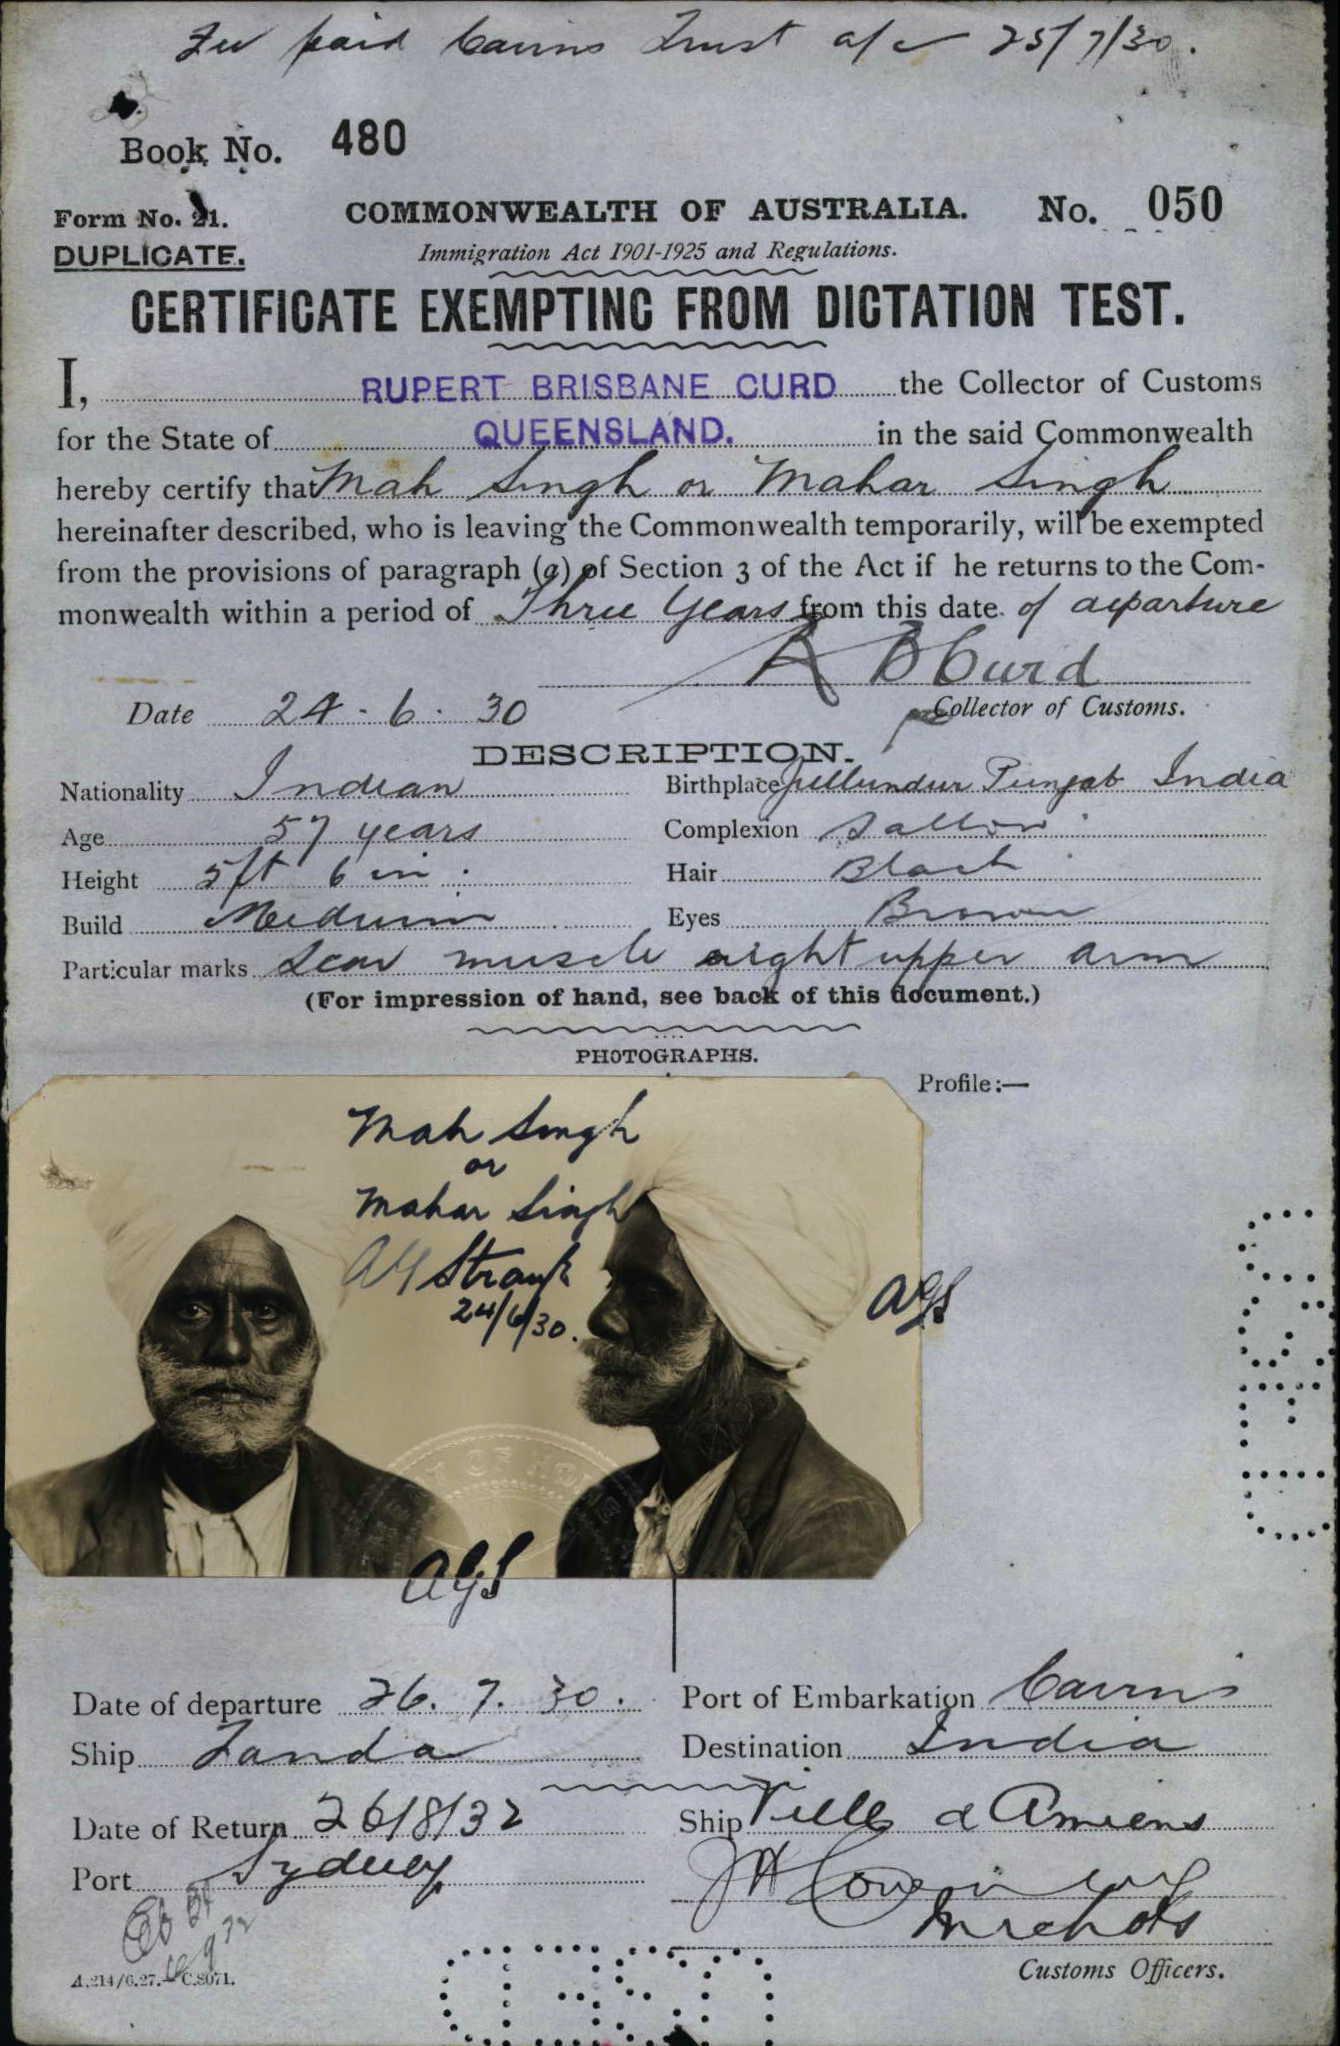 Fee paid Cairns Trust a/c 25/7/30.
Book No. 480
Form No. 21. COMMONWEALTH OF AUSTRALIA. No. 050
DUPLICATE. Immigration Act 1901-1925 and Regulations.
CERTIFICATE EXEMPTING FROM DICTATION TEST.
I, RUPERT BRISBANE CURD the Collector of Customs
for the State of QUEENSLAND. in the said Commonwealth
hereby certify that Mah Singh or Mahar Singh
hereinafter described, who is leaving the Commonwealth temporarily, will be exempted
from the provisions of paragraph (a) of Section 3 of the Act if he returns to the Com-
monwealth within a period of Three Years from this date of departure
R B Curd
Date 24.6.30 Collector of Customs.
DESCRIPTION.
Nationality Indian Birthplace Jullundur Punjab India
Age 57 years Complexion Sallow
Height 5ft 6 in. Hair Black
Build Medium Eyes Brown
Particular marks Scar muscle right upper arm
(For impression of hand, see back of this document.)
PHOTOGRAPHS.
Profile:—
Mah Singh
or
Mahar Singh
24/6/30.
AGS
AGS
Date of departure 26.7.30. Port of Embarkation Cairns
Ship Tanda Destination India
Date of Return 26/8/32 Ship Ville d Amiens
Port Sydney
Customs Officers.
A.214/6.27.—C.8071.